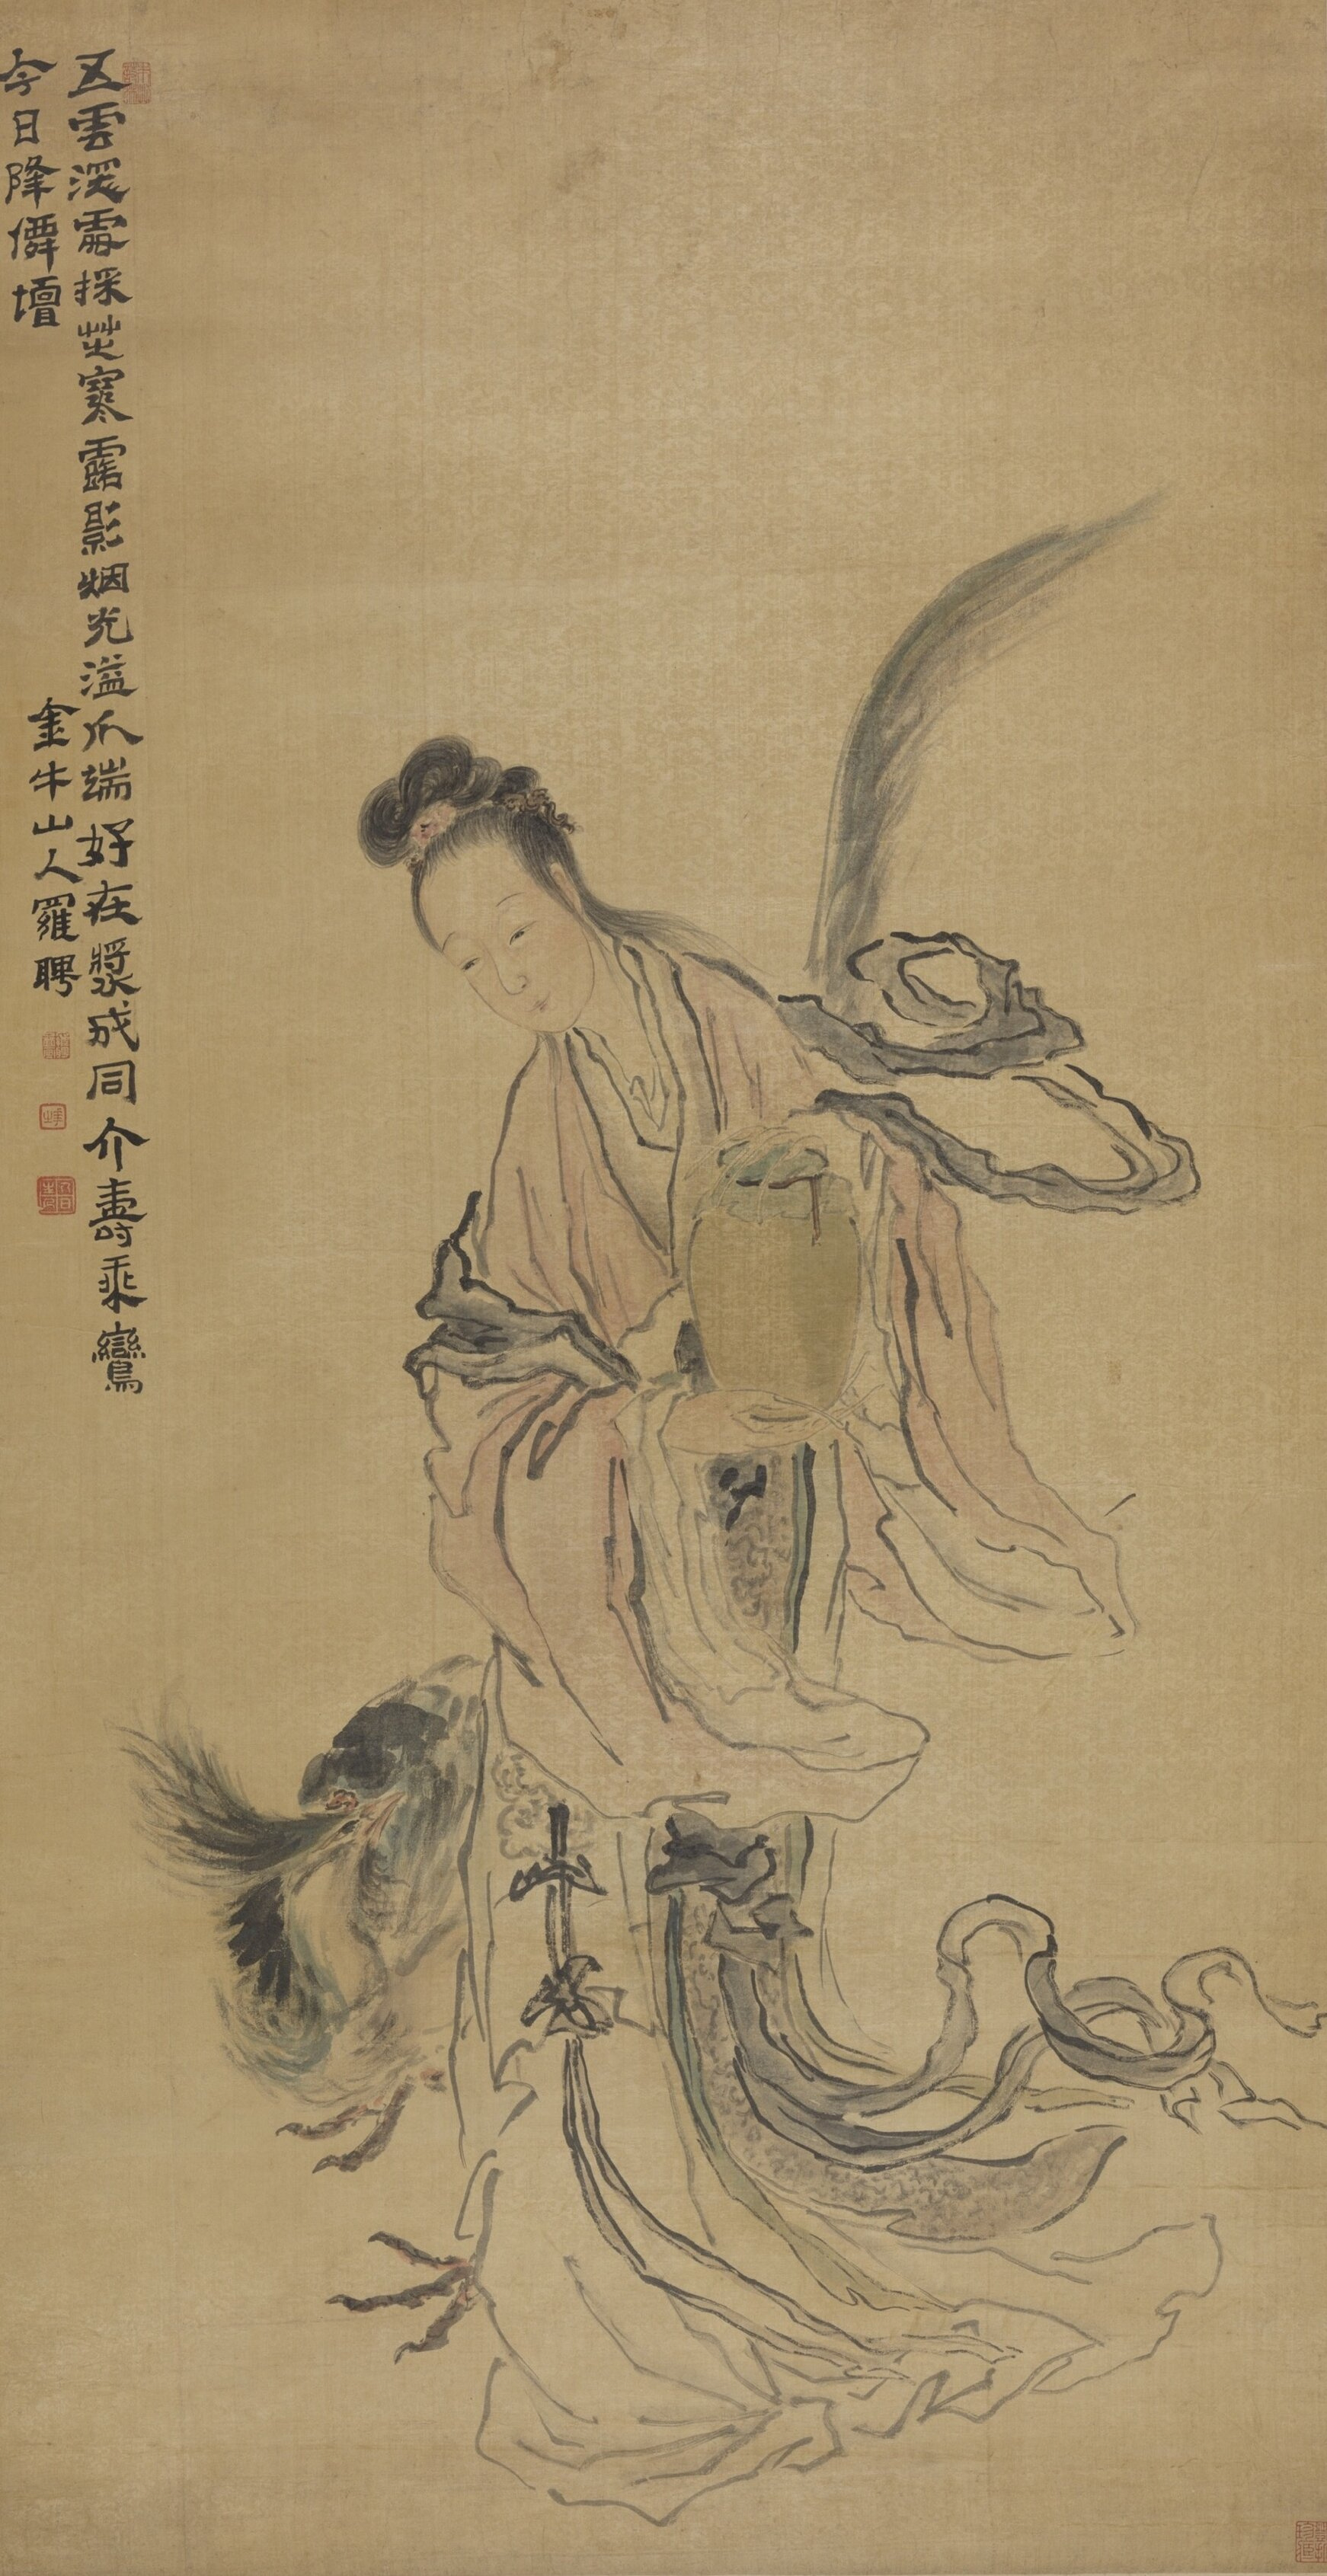 五雲深處採芝寒露影烟光溢爪端好在漿成同介壽乘鸞
今日降僊壇
金牛山人羅聘